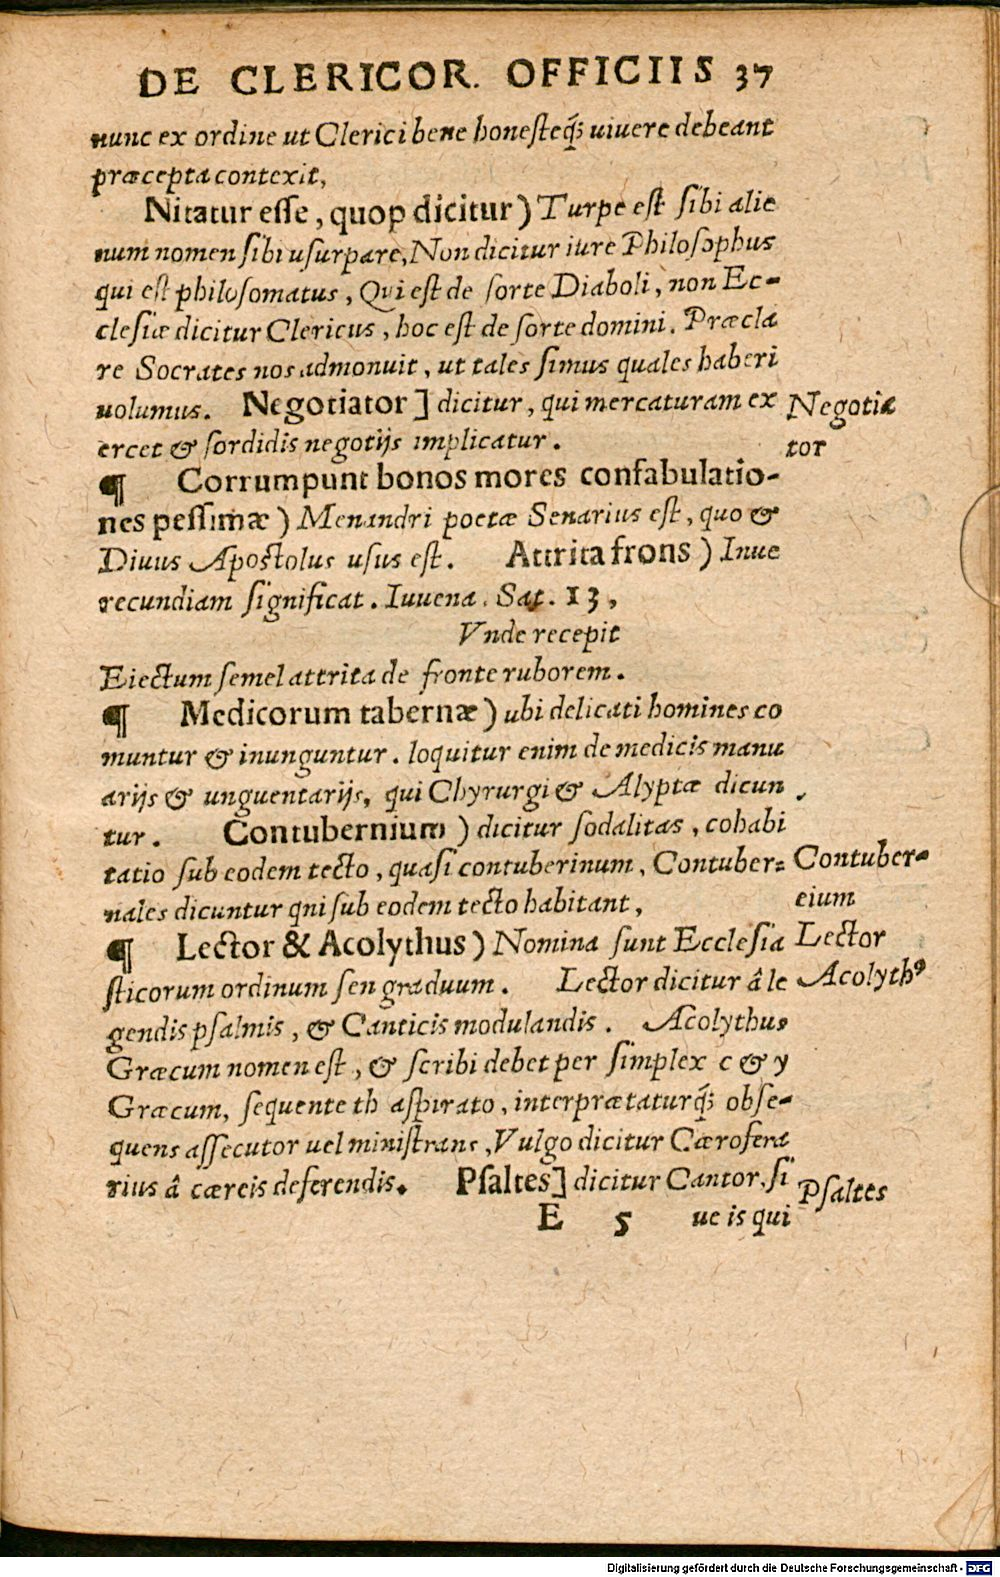 DE CLERICOR. OFFICIIS 37
nunc ex ordine ut Clerici bene honesteq́; uiuere debeant
præcepta contexit,
Nitatur esse, quop dicitur) Turpe est sibi alie
num nomen sibi usurpare, Non dicitur iure Philosophus
qui est philosomatus, Qui est de sorte Diaboli, non Ec-
clesiæ dicitur Clericus, hoc est de sorte domini. Præcla
re Socrates nos admonuit, ut tales simus quales haberi
uolumus. Negotiator] dicitur, qui mercaturam ex
Negotia
ercet & sordidis negotijs implicatur.
tor
¶ Corrumpunt bonos mores confabulatio-
nes pessimæ) Menandri poetæ Senarius est, quo &
Diuus Apostolus usus est. Attrita frons) Inue
recundiam significat. Iuuena. Sat. 13,
Vnde recepit
Eiectum semel attrita de fronte ruborem.
¶ Medicorum tabernæ) ubi delicati homines co
muntur & inunguntur. loquitur enim de medicis manu
arijs & unguentarijs, qui Chyrurgi & Alyptæ dicun
tur. Contubernium) dicitur sodalitas, cohabi
tatio sub eodem tecto, quasi contuberinum, Contuber-
Contuber-
nales dicuntur qni sub eodem tecto habitant,
eium
¶ Lector & Acolythus) Nomina sunt Ecclesia
Lector
sticorum ordinum sen graduum. Lector dicitur â le
Acolythꝰ
gendis psalmis, & Canticis modulandis. Acolythus
Græcum nomen est, & scribi debet per simplex c & y
Græcum, sequente th aspirato, interprætaturq́; obse-
quens assecutor uel ministrans, Vulgo dicitur Cærofera
rius â cæreis deferendis. Psaltes] dicitur Cantor, si
Psaltes
E 5 ue is qui
Digitalisierung gefördert durch die Deutsche Forschungsgemeinschaft - DFG